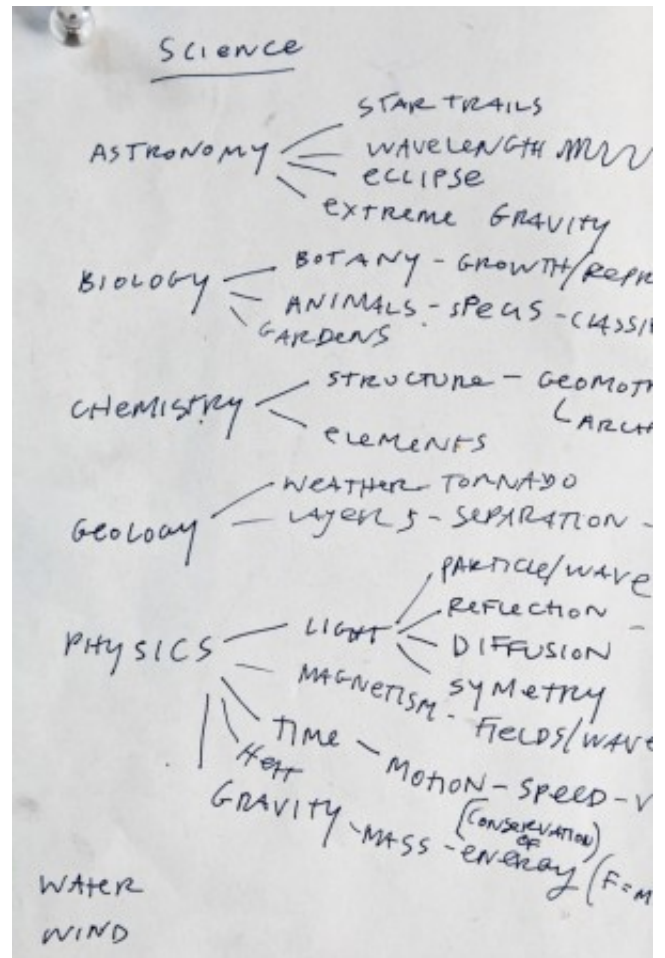 Science
STAR TRAILS
ASTRONOMY
WAVELENGTH
ECLIPSE
EXTREME GRAVITY
BIOLOGY
BOTANY - GROWTH/REPR
ANIMALS - SPECIS - CLASSIF
GARDENS
CHEMISTRY
STRUCTURE - GEOMOTR
ARCH
ELEMENTS
GEOLOGY
WEATHER TORNADO
LAYERS - SEPARATION -
PHYSICS
LIGHT
PARTICLE/WAVE
REFLECTION -
DIFFUSION
SYMETRY
MAGNETISM - FIELDS/WAVE
TIME - MOTION - SPEED - V
HEAT
GRAVITY - MASS - (CONSERVATION OF) ENERGY (F=M
WATER
WIND